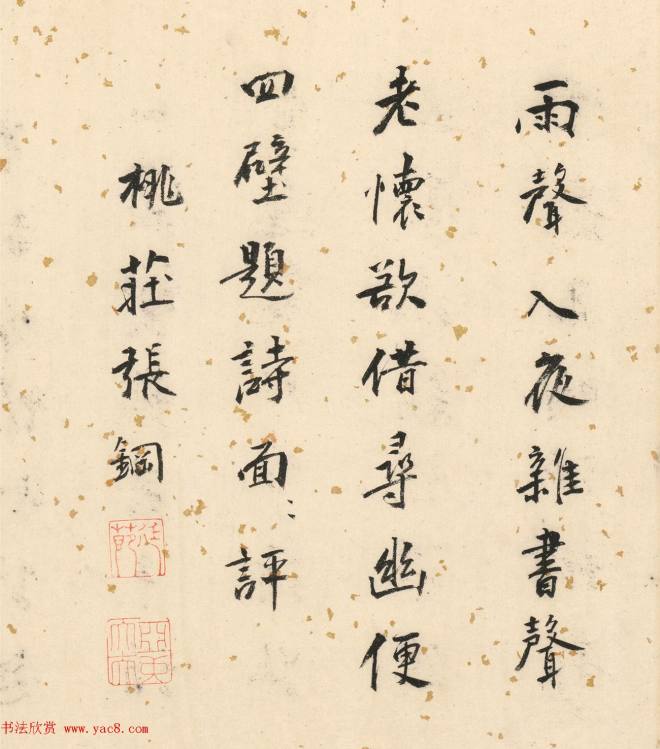 雨聲入夜雜書聲
老懷欲借尋幽便
四壁題詩面〻評
桃莊張鋼
书法欣赏 www.yac8.com